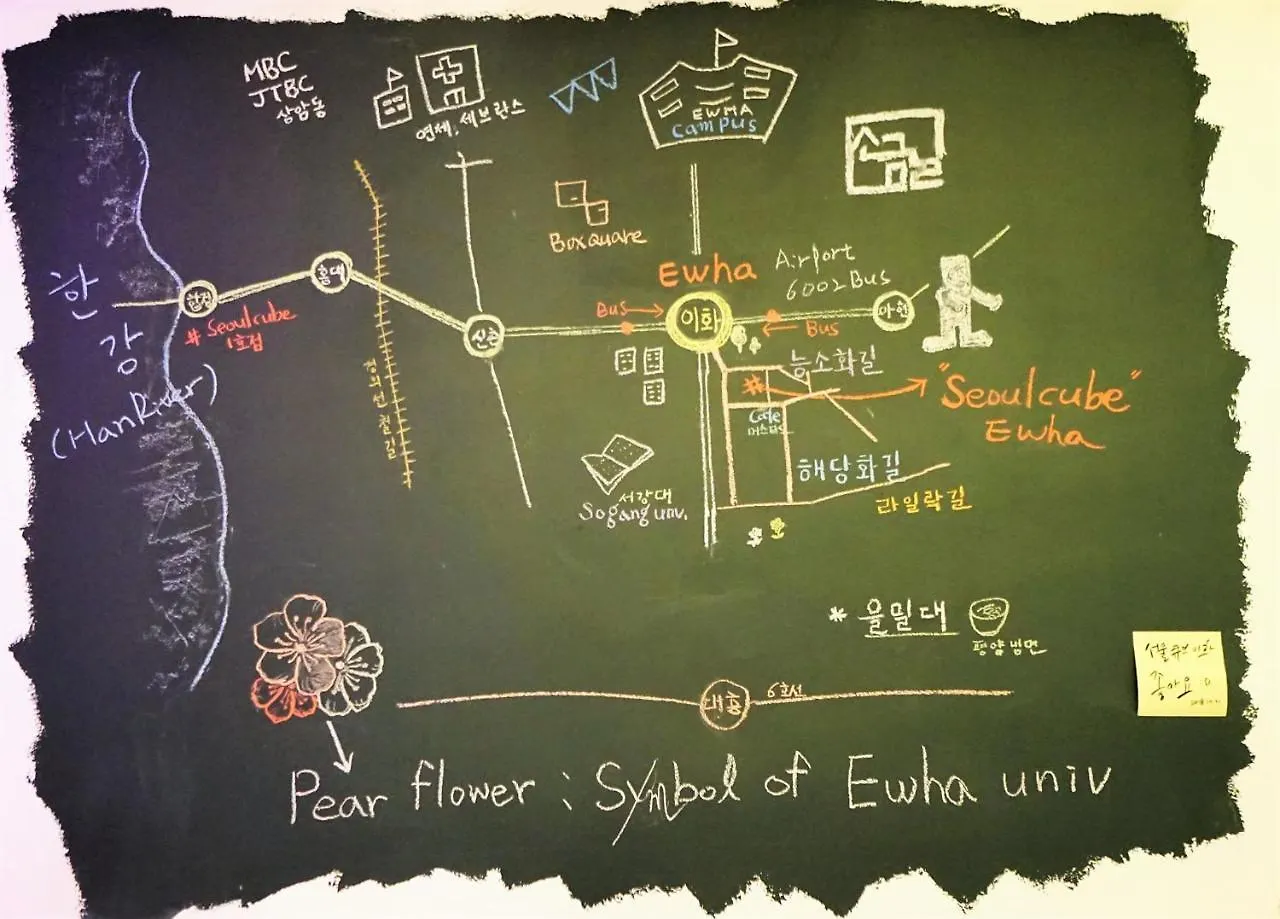 MBC
JTBC
상암동
연세, 세브란스
EWHA
campus
소금길
Boxquare
한
강
(Han River)
합정
# Seoulcube
1호점
홍대
경의선 철길
신촌
Bus
Ewha
이화
Airport
6002 Bus
Bus
아현
능소화길
Cafe
"Seoulcube"
Ewha
해당화길
라일락길
서강대
Sogang univ.
* 을밀대
평양냉면
대흥
6호선
서울큐브 이화
좋아요 :D
Pear flower ; Symbol of Ewha univ